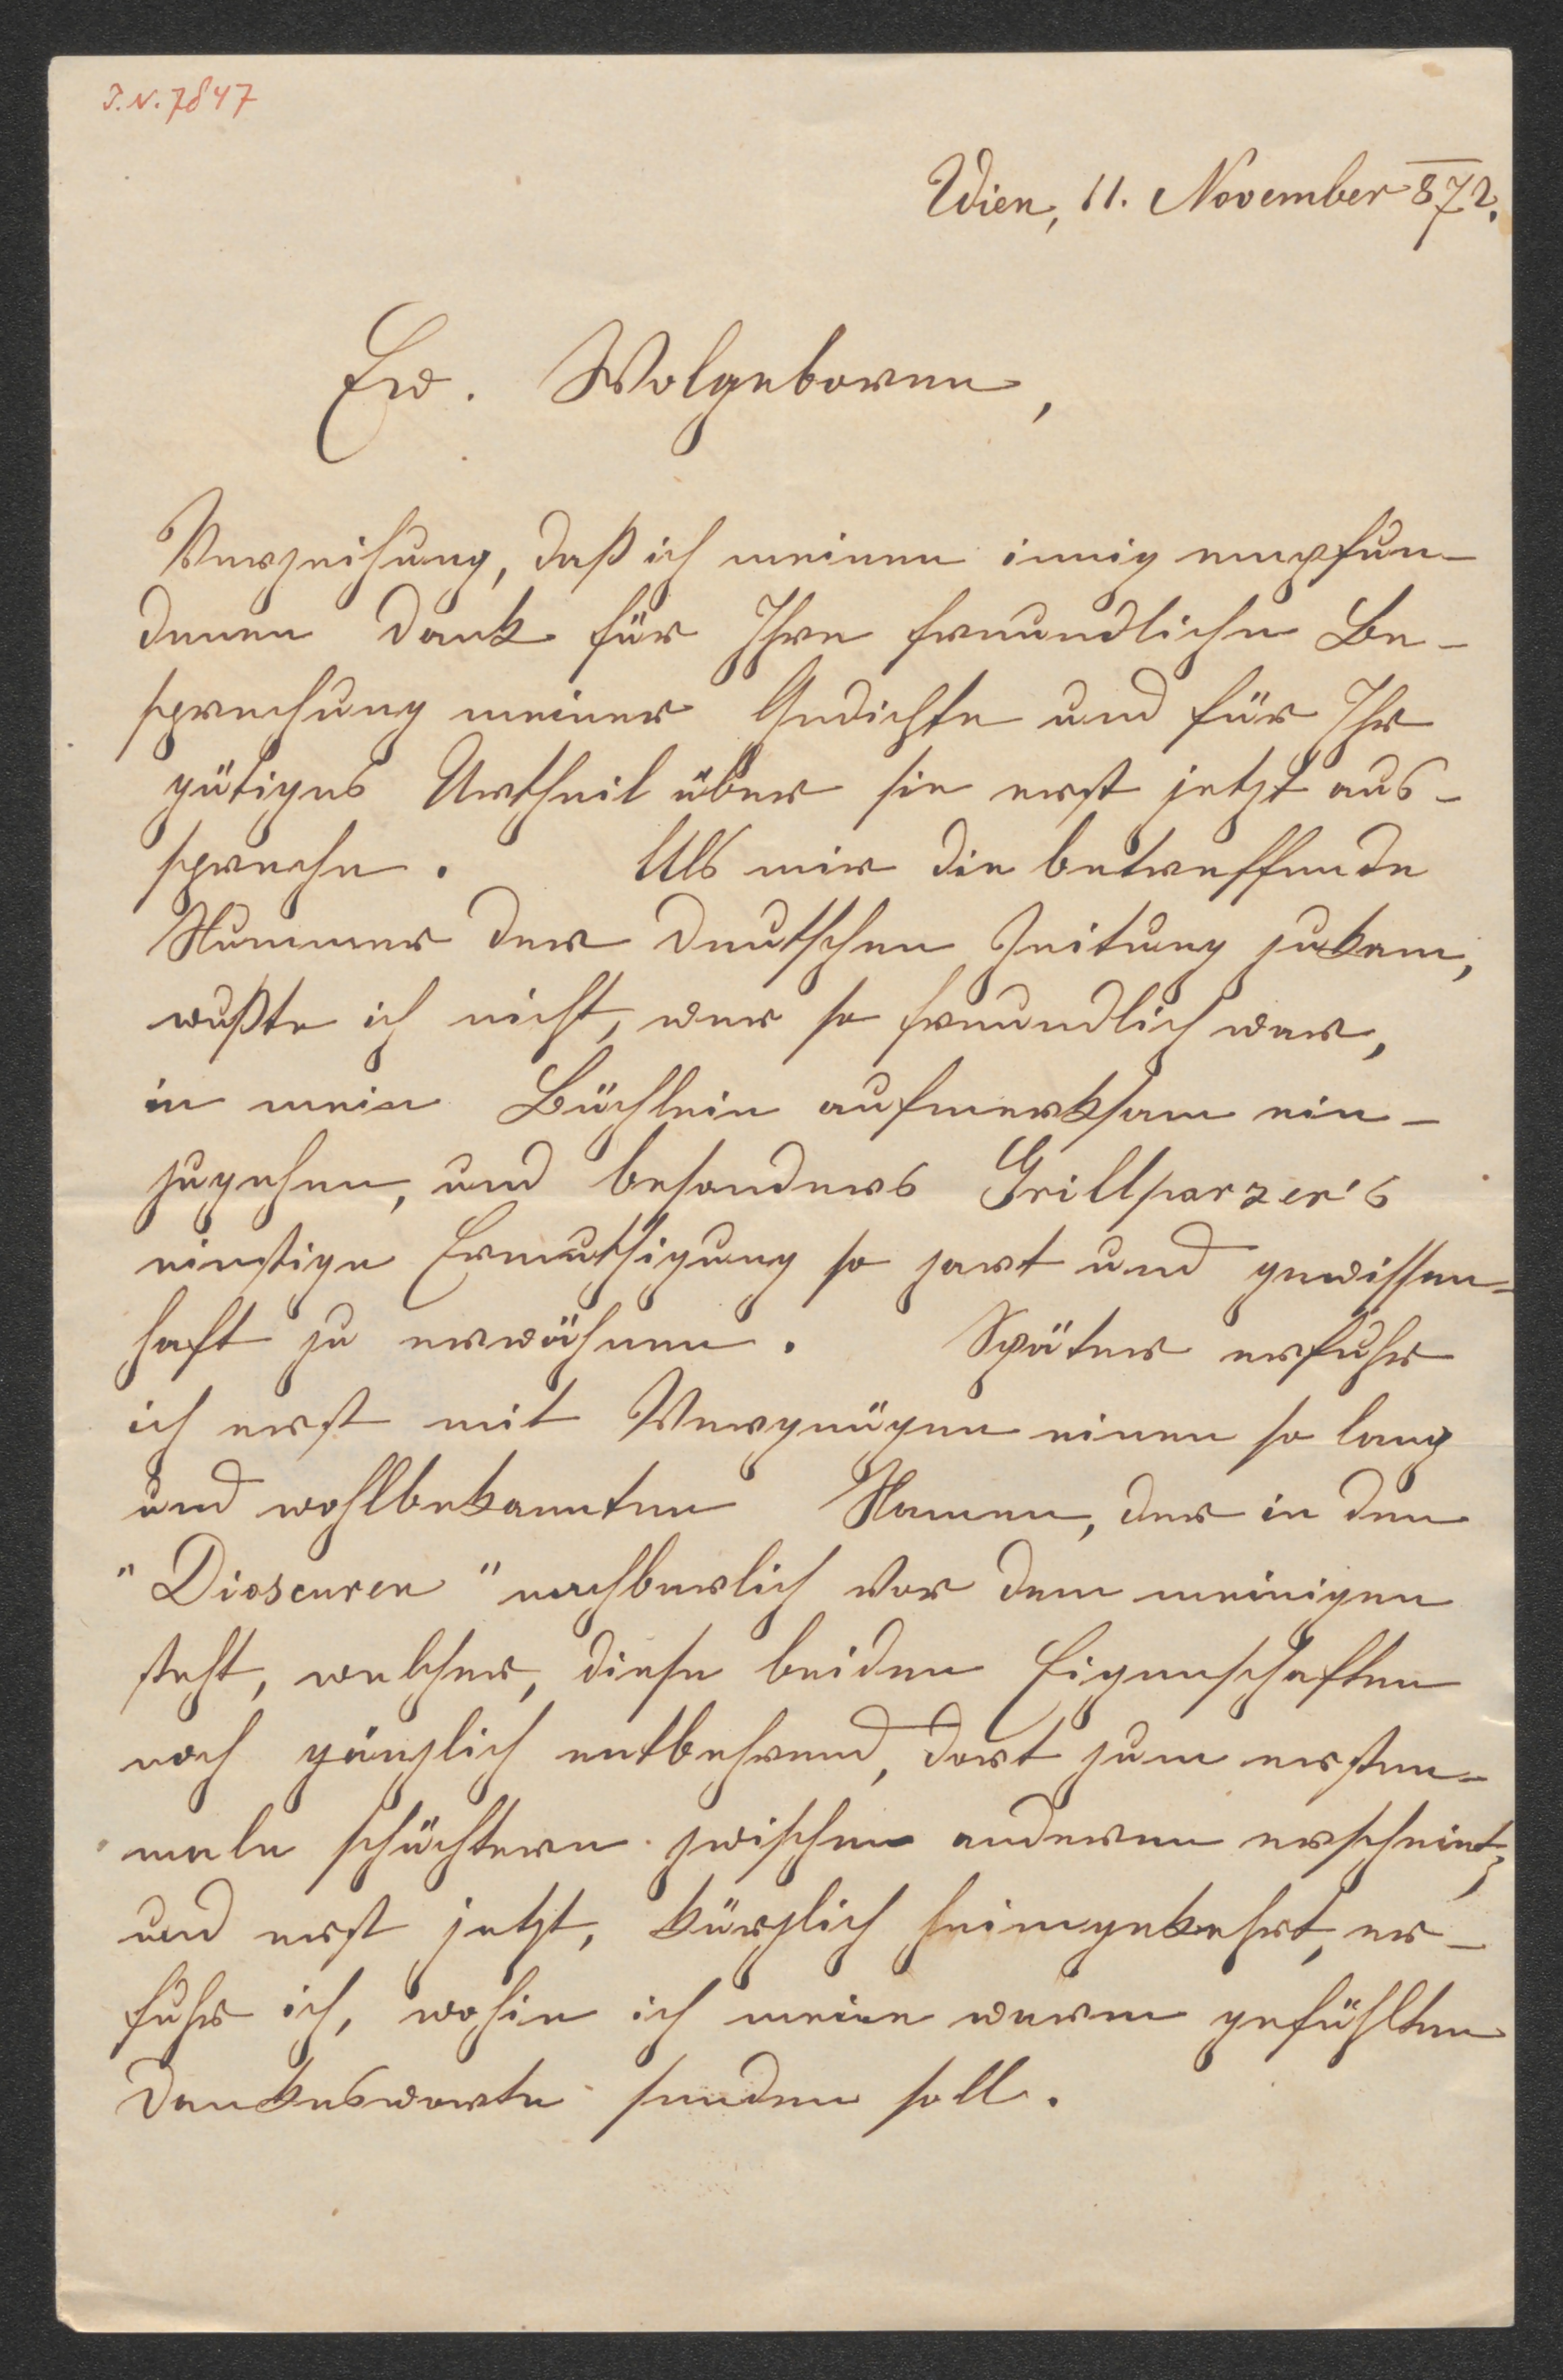 J.N. 7847
Wien, 11. November 872.
Ew. Wolgeboren,
Verzeihung, daß ich meinen innig empfun-
denen Dank für Ihre freundliche Be-
sprechung meiner Gedichte und für Ihr
gütiges Urtheil über sie erst jetzt aus-
spreche. Als mir die betreffende
Nummer der Deutschen Zeitung zukam,
wußte ich nicht, wer so freundlich war,
in mein Büchlein aufmerksam ein-
zugehen, und besonders Grillparzer's
einstige Ermuthigung so zart und gewissen-
haft zu erwähnen. Später erfuhr
ich erst mit Vergnügen einen so lang
und wohlbekannten Namen, der in den
"Dioscuren" nachbarlich vor dem meinigen
steht, welcher, diese beiden Eigenschaften
noch gänzlich entbehrend, dort zum ersten-
male schüchtern zwischen anderen erscheint,
und erst jetzt, kürzlich heimgekehrt, er-
fuhr ich, wohin ich meine warm gefühlten
Dankesworte senden soll.